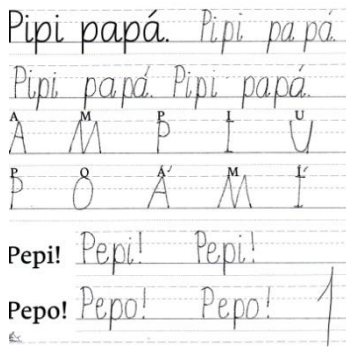 Pipi papá. Pipi papá.
Pipi papá. Pipi papá.
A M P L U
A M P L U
P O Á M Ĺ
P O Á M Í
Pepi! Pepi! Pepi!
Pepo! Pepo! Pepo! 1